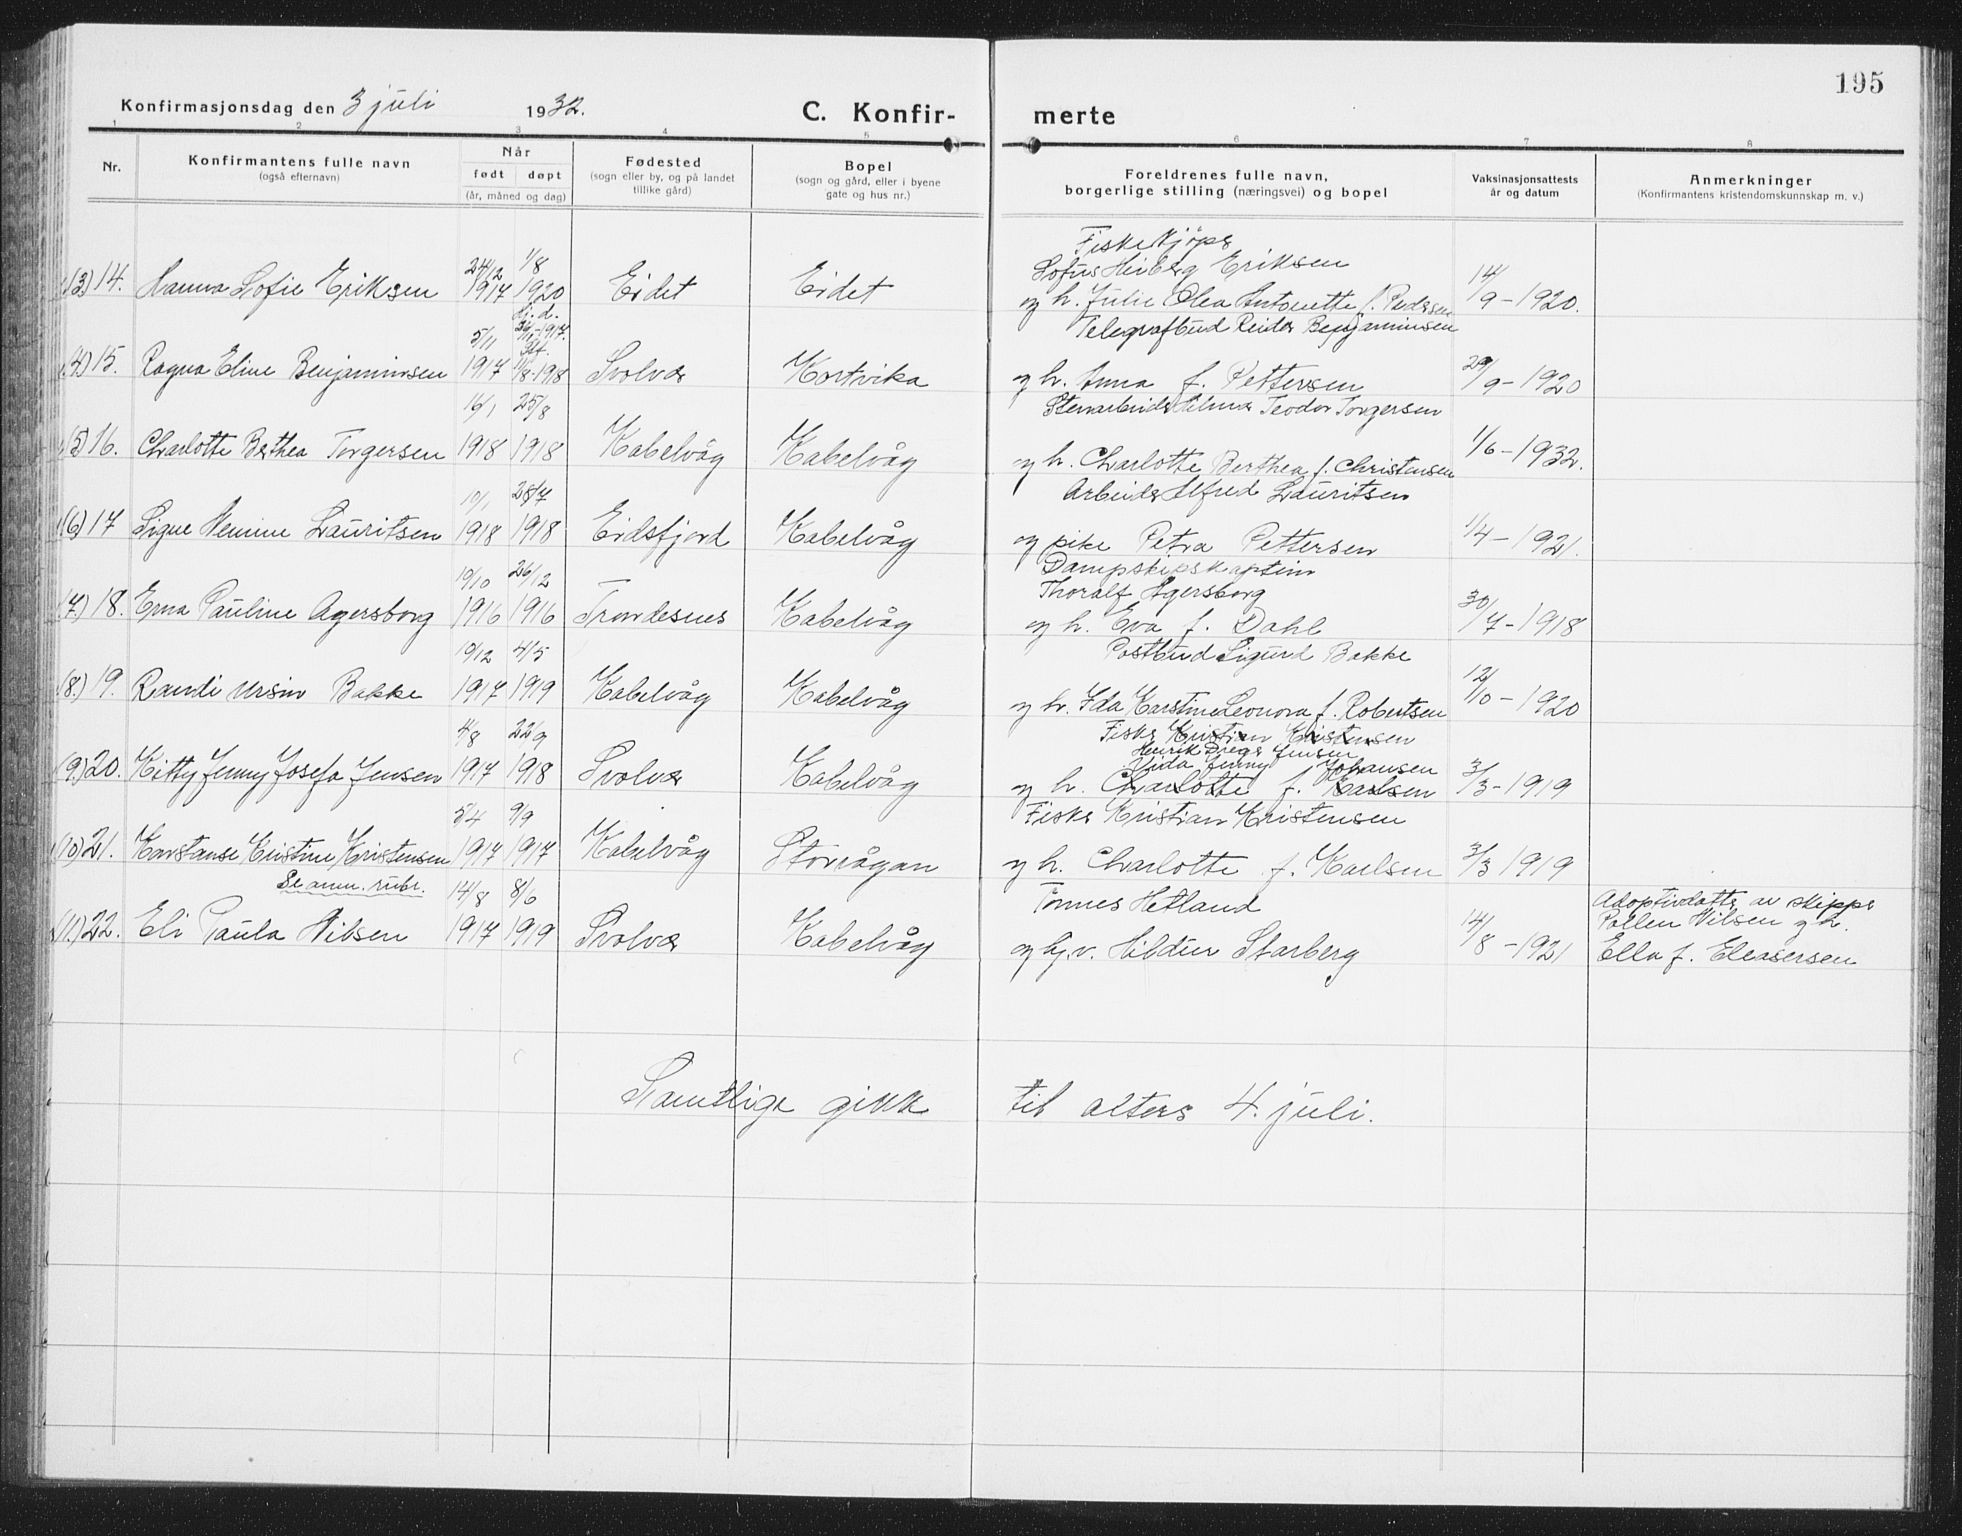 195
Konfirmasjonsdag den 3 juli 1932. C. Konfirmerte
1 2 3 4 5 6 7 8
Nr. Konfirmantens fulle navn (også efternavn) Når født døpt (år, måned og dag) Fødested (sogn eller by, og på landet tillike gård) Bopel (sogn og gård, eller i byene gate og hus nr.) Foreldrenes fulle navn, borgerlige stilling (næringsvei) og bopel Vaksinasjonsattests år og datum Anmerkninger (Konfirmantens kristendomskunnskap m. v.)
Fiskekjøper
24/12 1/8 Lofus Heiberg Eriksen
(3) 14. Hanna Sofie Eriksen 1917 1920 Eidet Eidet og h. Julie Olea Antonette f. Pedersen 14/9-1920.
hj. d. 26/11-1917.
5/11 Telegrafbud Reidar Benjaminsen
(4) 15. Ragna Eline Benjaminsen 1917 11/8-1918 Svolvær Kortvika og h. Anna f. Pettersen 29/9-1920
16/1 25/8 Stenarbeider Teodor Torgersen
(5) 16. Charlotte Berthea Torgersen 1918 1918 Kabelvåg Kabelvåg og h. Charlotte Berthea f. Christensen 1/6-1932.
10/1 28/7 Arbeider Alfred Lauritsen
(6) 17 Signe Lauritsen 1918 1918 Eidsfjord Kabelvåg og pike Petra Pettersen 1/4-1921.
Dampskipskaptein
19/10 26/12 Thoralf Agersborg
(7.) 18. Erna Pauline Agersborg 1916 1916 Trondesnes Kabelvåg og h. Eva f. Dahl 30/7-1918
19/12 4/5 Postbud Sigurd Bakke
(8.) 19. Randi Ursin Bakke 1917 1919 Kabelvåg Kabelvåg og h. Ida Karstine Leonora f. Robertsen 12/10-1920
4/8 22/9 Fisker Kristian Kristensen
Henrik Jensen
Jenny Johansen
(9.) 20. Kitty Jenny Josefa Jensen 1917 1918 Svolvær Kabelvåg og h. Charlotte f. Karlsen 3/3-1919
5/4 9/9 Fisker Kristian Kristensen
(10) 21. Konstanse Kristine Kristensen 1917 1917 Kabelvåg Storvågan og h. Charlotte f. Karlsen 3/3 1919
Se anm. rubr. 14/8 8/6 Tønnes Hetland Adoptivdatter av skipper
(11.) 22. Eli Paula Nilsen 1917 1919 Svolvær Kabelvåg og Hildur Starberg 14/8-1921 Nilsen og h.
Ella f. Eleasersen
Samtlige gikk til alters 4. juli.